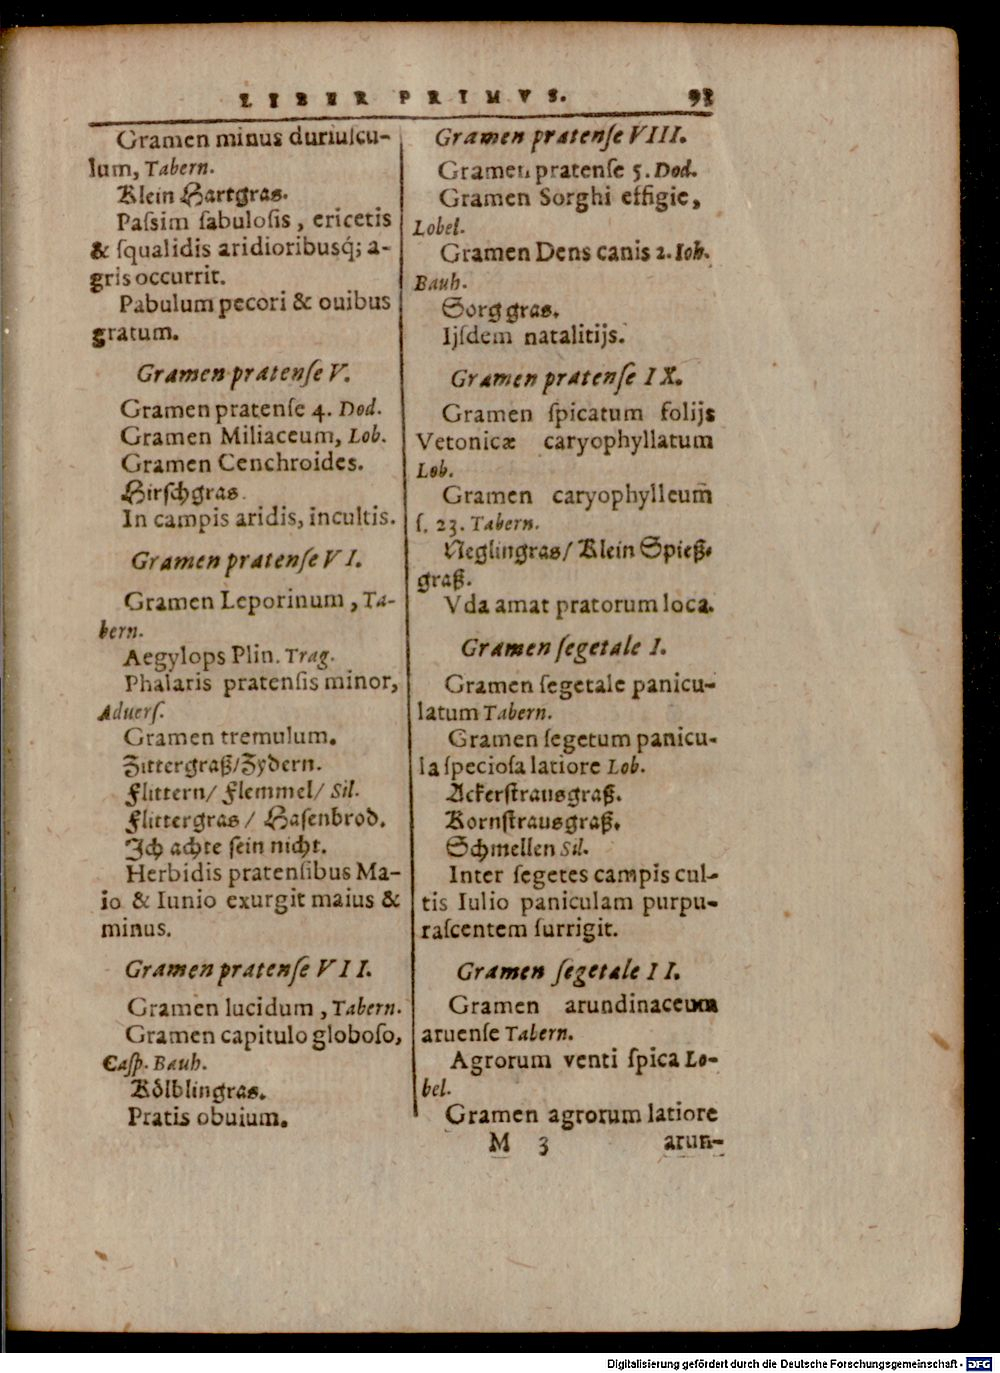 LIBER PRIMVS. 93
Gramen minus duriuſcu-
lum, Tabern.
Klein Hartgras.
Paſsim ſabuloſis, ericetis
& ſqualidis aridioribusq́; a-
gris occurrit.
Pabulum pecori & ouibus
gratum.
Gramen pratenſe V.
Gramen pratenſe 4. Dod.
Gramen Miliaceum, Lob.
Gramen Cenchroides.
Hirſchgras.
In campis aridis, incultis.
Gramen pratenſe VI.
Gramen Leporinum, Ta-
bern.
Aegylops Plin. Trag.
Phalaris pratenſis minor,
Aduerſ.
Gramen tremulum.
Zittergraß/Zydern.
Flittern/ Flemmel/ Sil.
Flittergras/ Haſenbrod.
Ich achte ſein nicht.
Herbidis pratenſibus Ma-
io & Iunio exurgit maius &
minus.
Gramen pratenſe VII.
Gramen lucidum, Tabern.
Gramen capitulo globoſo,
Caſp. Bauh.
Kölblingras.
Pratis obuium.
Gramen pratenſe VIII.
Gramen pratenſe 5. Dod.
Gramen Sorghi effigie,
Lobel.
Gramen Dens canis 2. Ioh.
Bauh.
Sorg gras.
Ijſdem natalitijs.
Gramen pratenſe IX.
Gramen ſpicatum folijs
Vetonicæ caryophyllatum
Lob.
Gramen caryophylleum̃
ſ. 23. Tabern.
Neglingras/ Klein Spieß-
graß.
Vda amat pratorum loca.
Gramen ſegetale I.
Gramen ſegetale panicu-
latum Tabern.
Gramen ſegetum panicu-
la ſpecioſa latiore Lob.
Ackerſtrausgraß.
Kornſtrausgraß.
Schmellen Sil.
Inter ſegetes campis cul-
tis Iulio paniculam purpu-
raſcentem ſurrigit.
Gramen ſegetale II.
Gramen arundinaceum
aruenſe Tabern.
Agrorum venti ſpica Lo-
bel.
Gramen agrorum latiore
M 3 arun-
Digitalisierung gefördert durch die Deutsche Forschungsgemeinschaft - DFG